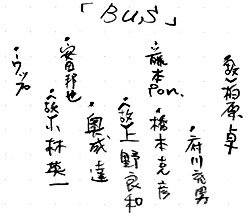 「BUS」
(故)柏原卓
・府川充男
・藤本Pon.
・橋本克彦
(故)上野良和
・奥成達
・安田邦也
(故)小林英一
・ワップ